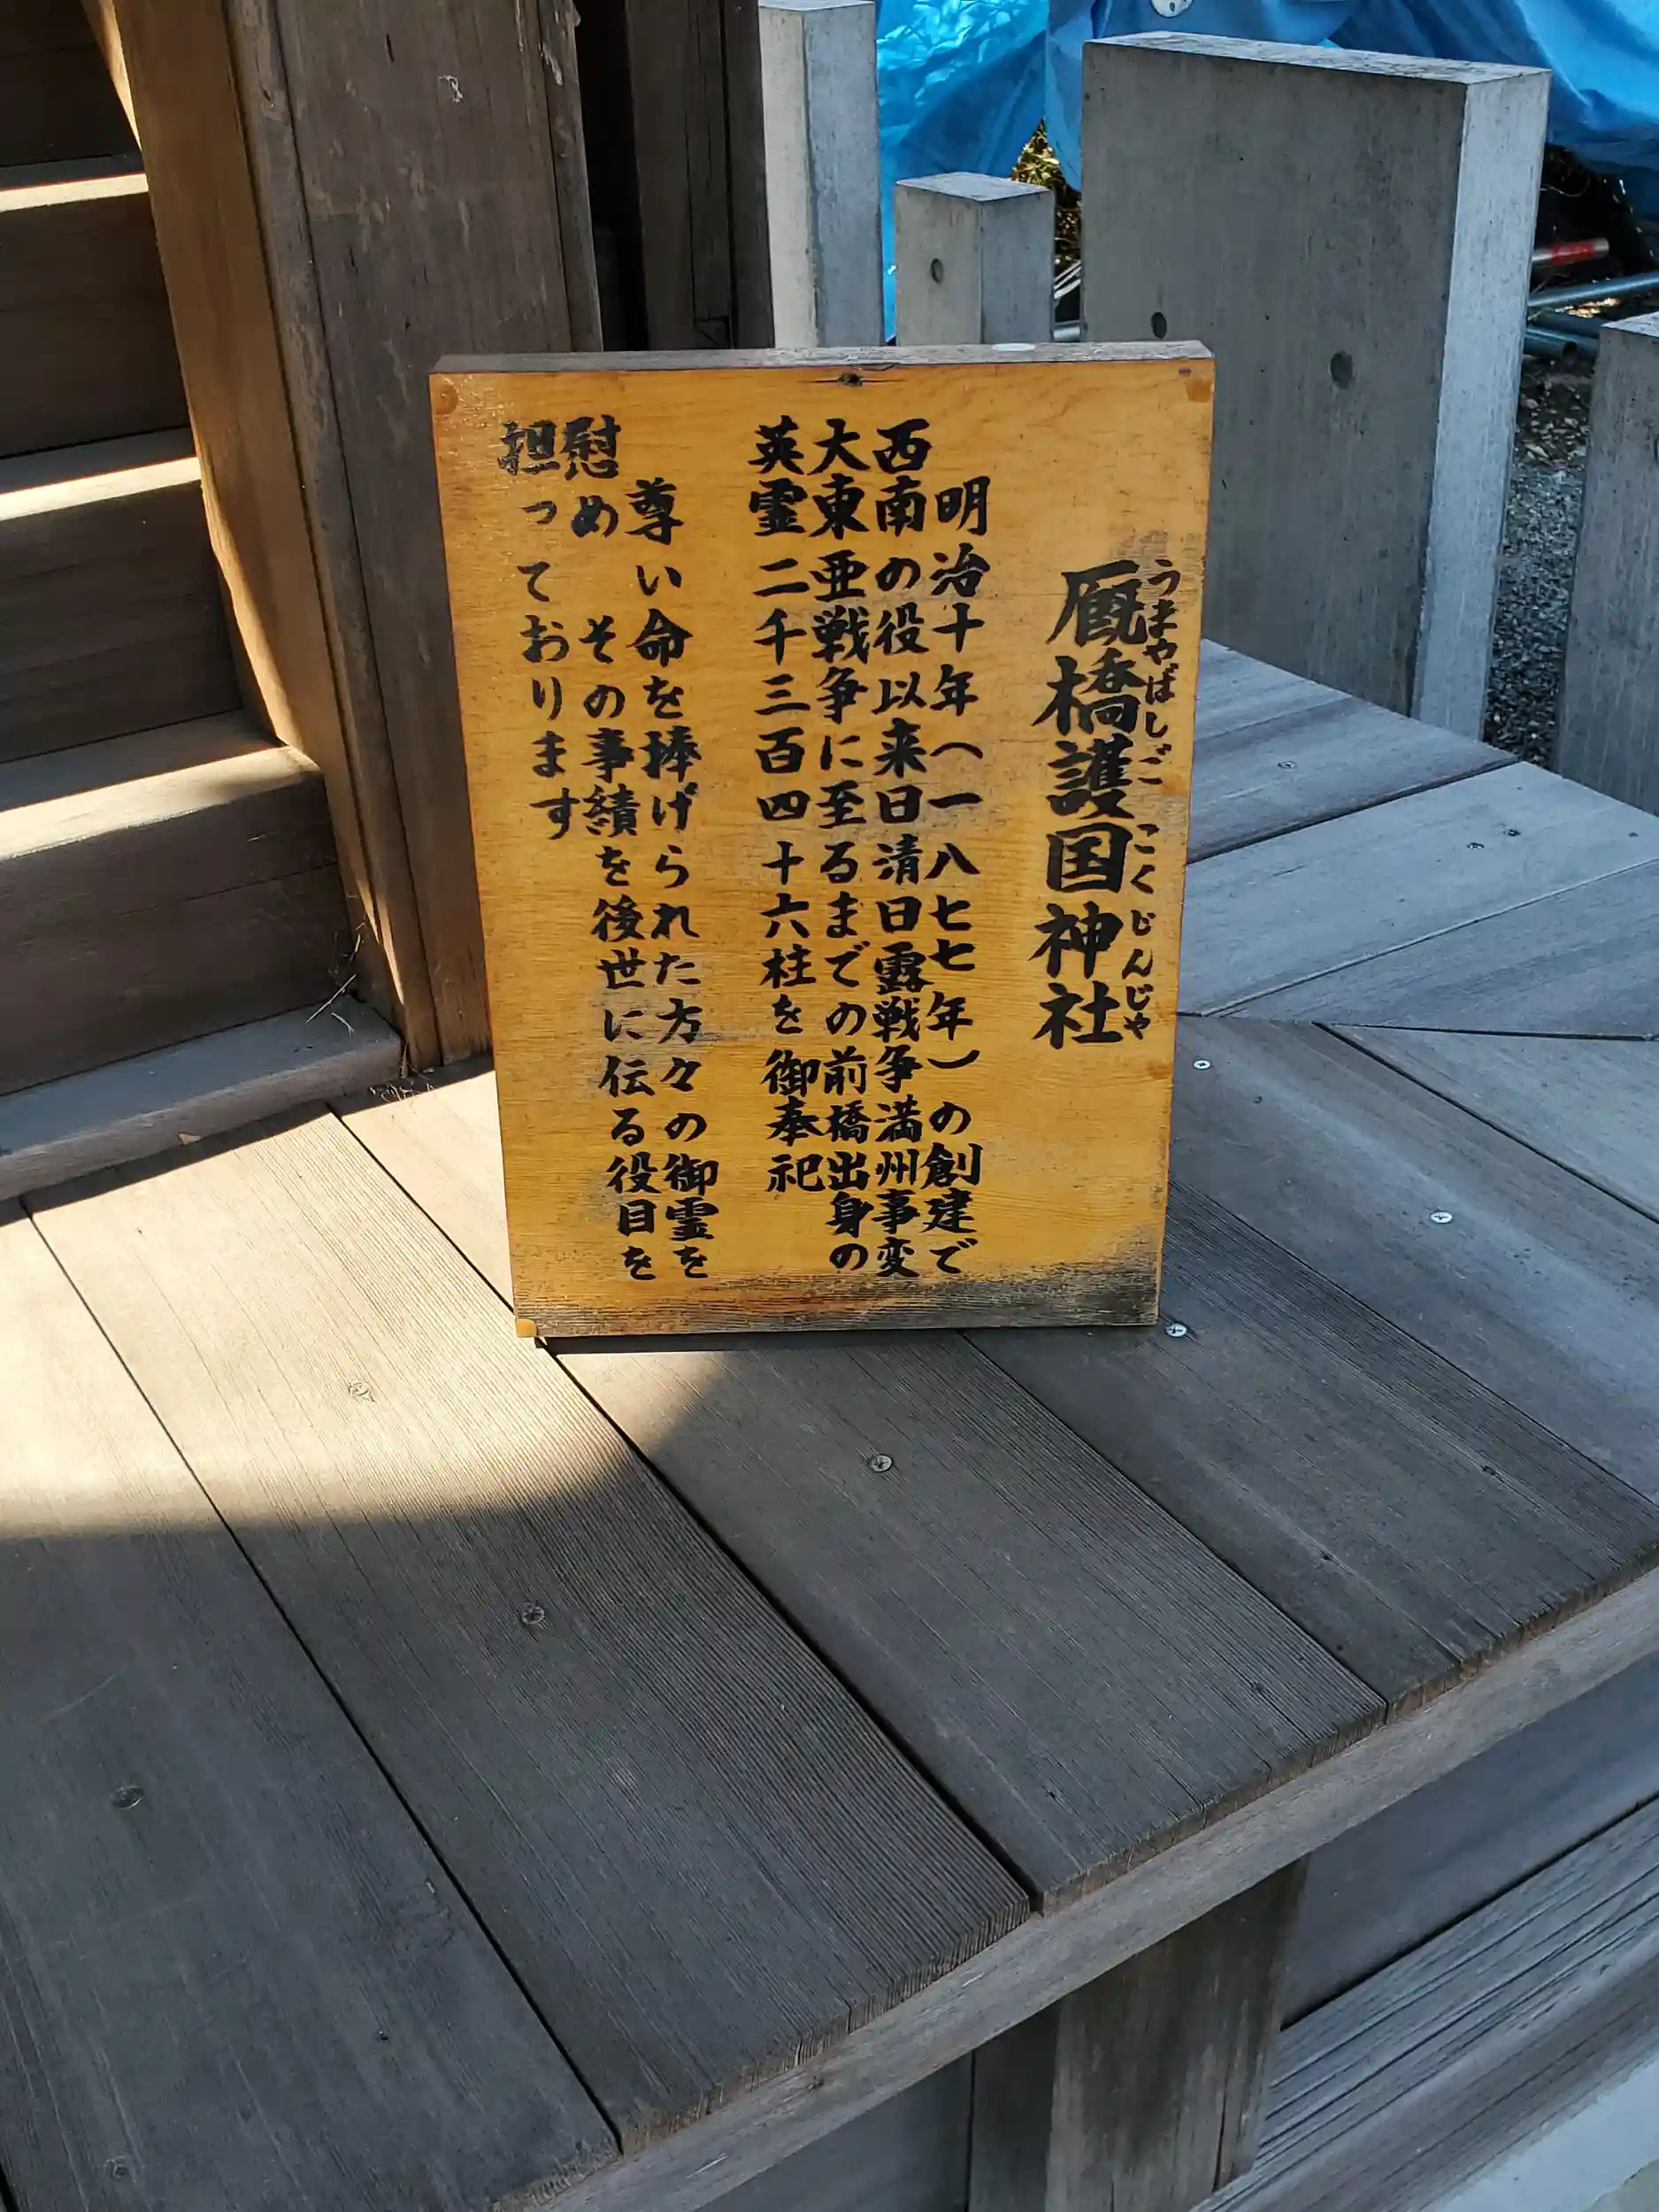 厩橋護国神社
うまやばしごこくじんじゃ
明治十年(一八七七年)の創建で
西南の役以来日清日露戦争満州事変
大東亜戦争に至るまでの前橋出身の
英霊二千三百四十六柱を御奉祀
尊い命を捧げられた方々の御霊を
慰め その事績を後世に伝る役目を
担っております